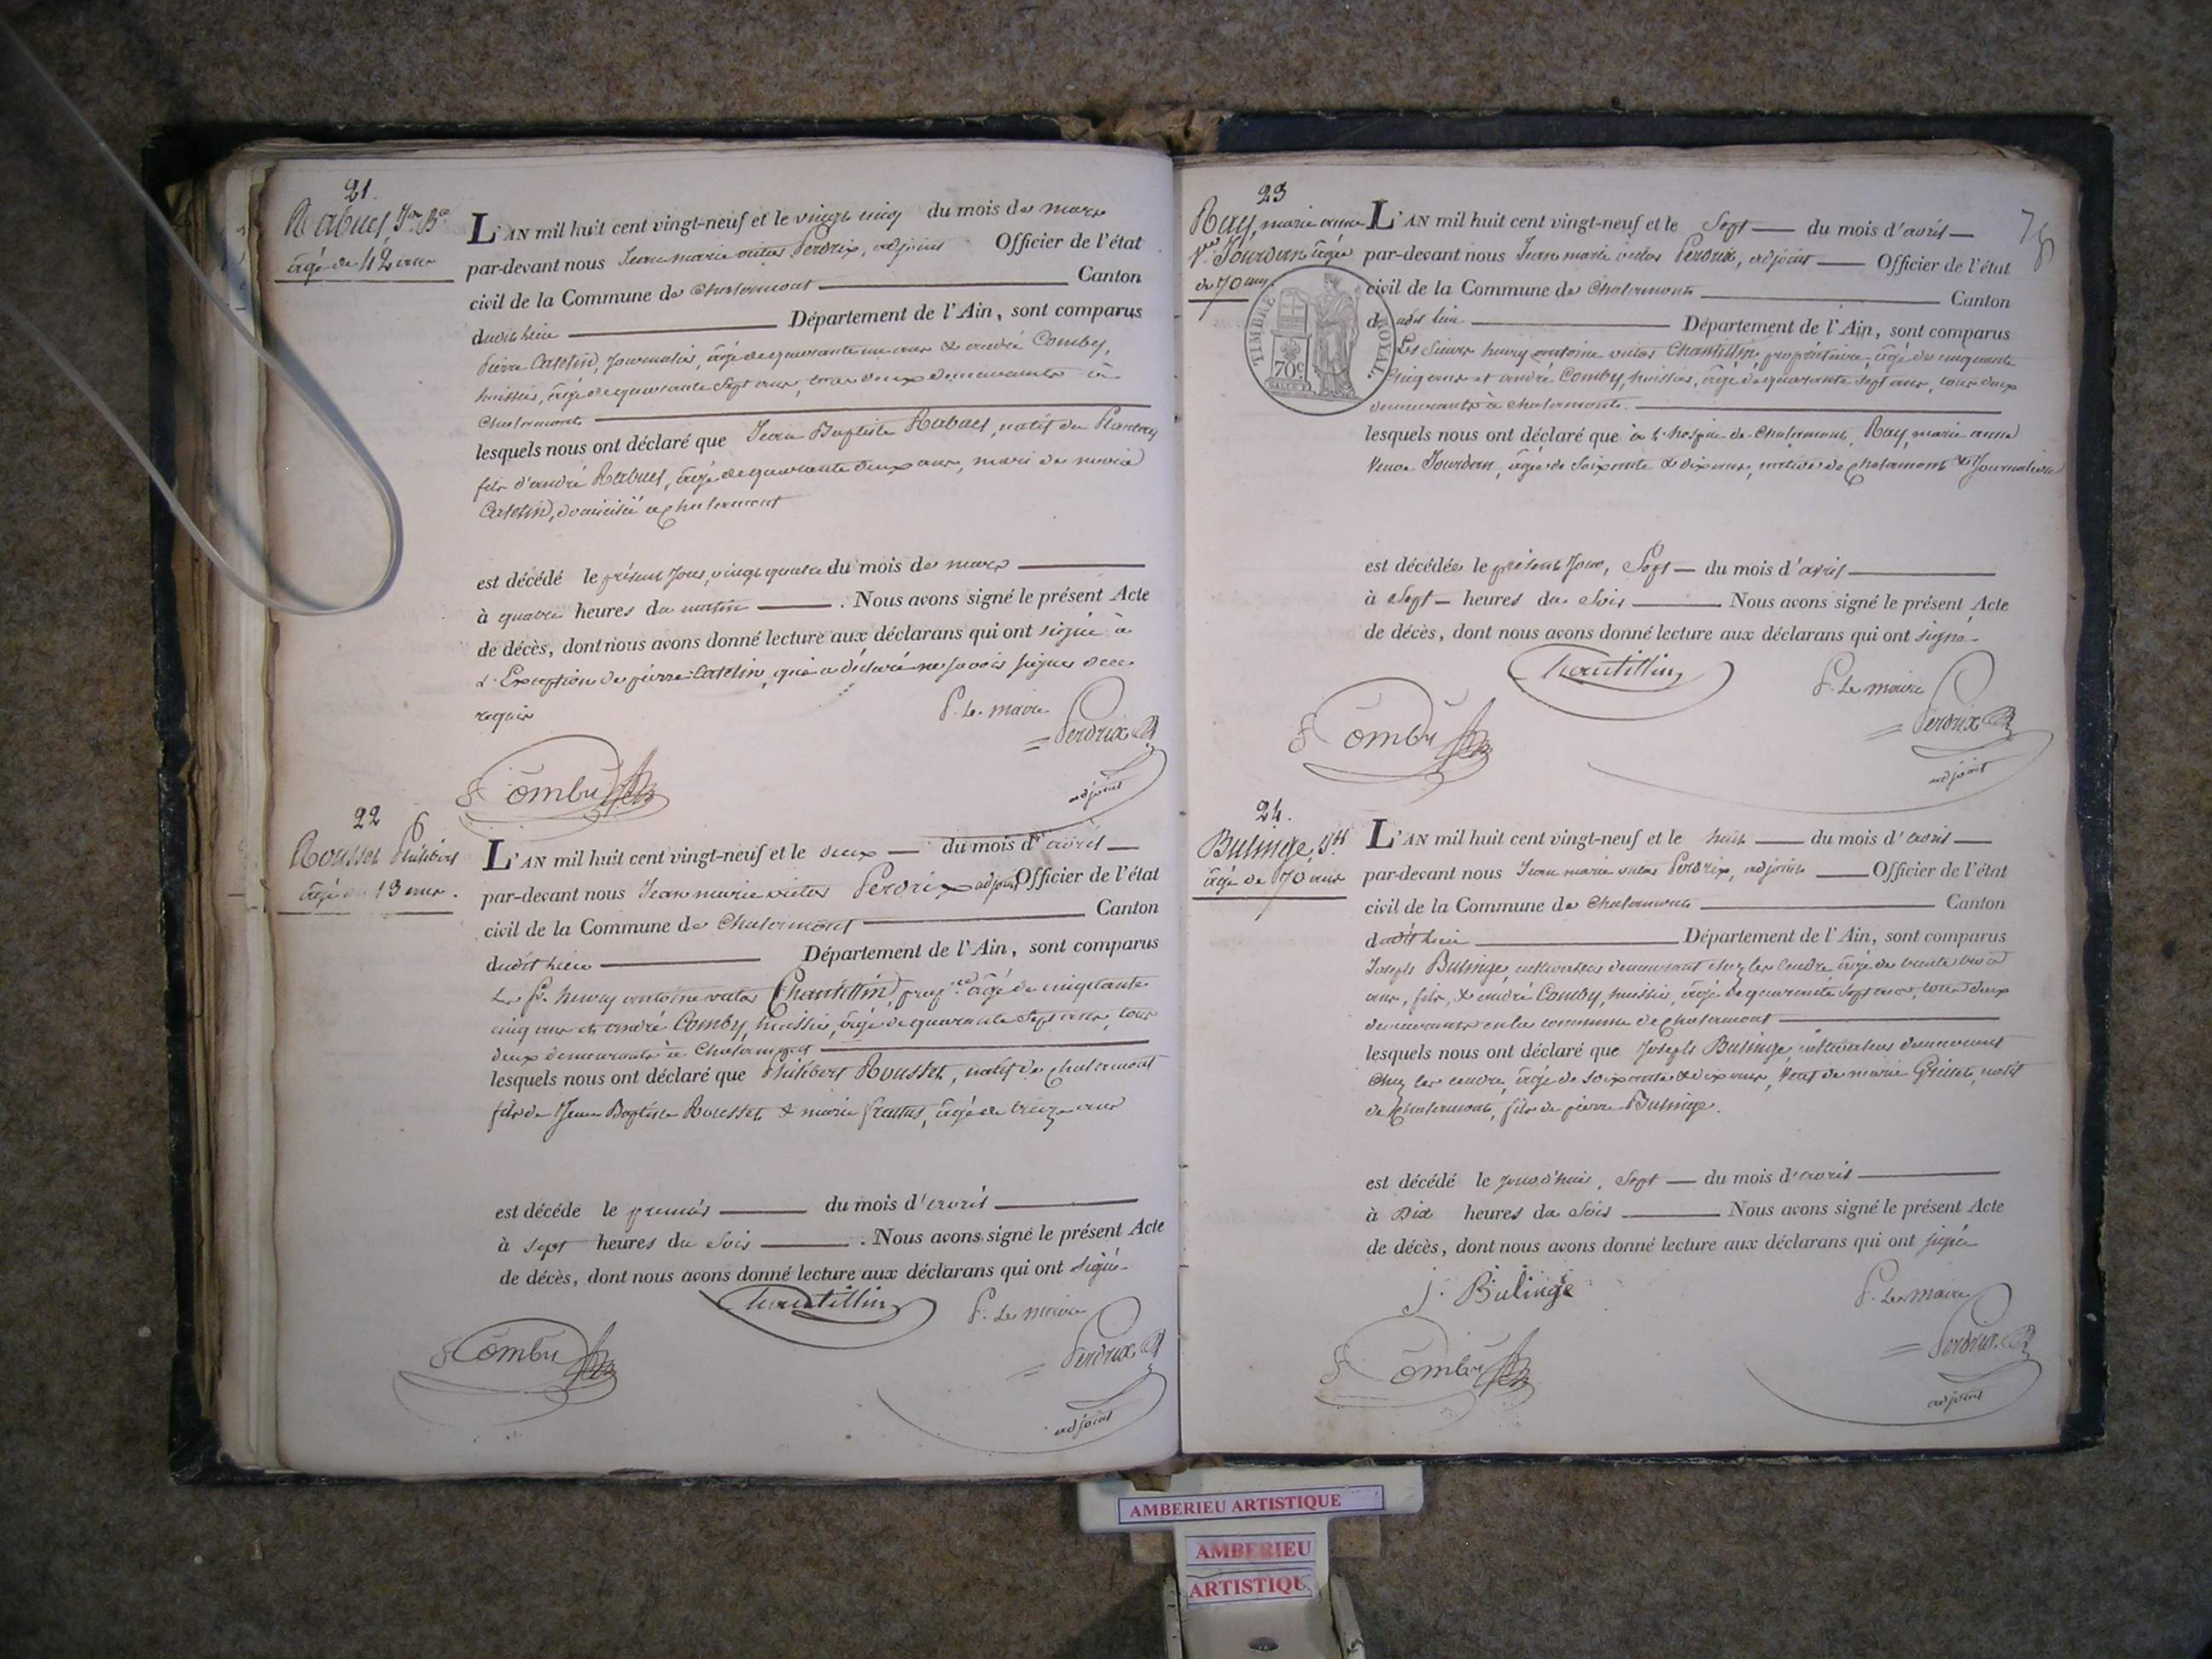 21.
Rabuel, Jn Bte
âgé de 42 ans
L'AN mil huit cent vingt-neuf et le vingt cinq du mois de mars
par-devant nous Jean marie victor Perdrix, adjoint Officier de l'état
civil de la Commune de Chalamont Canton
dudit lieu Département de l'Ain, sont comparus
Pierre Catelin, Journalier, âgé de quarante un ans & andré Comby,
huissier, âgé de quarante Sept ans, tous deux demeurants à
Chalamont
lesquels nous ont déclaré que Jean Baptiste Rabuel, natif du
fils d'andré Rabuel, âgé de quarante deux ans, mari de marie
Catelin, domicilié à Chalamont
est décédé le présent Jour, vingt quatre du mois de mars
à quatre heures du matin . Nous avons signé le présent Acte
de décès, dont nous avons donné lecture aux déclarans qui ont signé à
L'Exception de pierre Catelin, qui a déclaré ne savoir signer de ce
requis
P. Le maire
Perdrix
adjoint
Comby
22
Rousset Philibert
âgé de 13 ans.
L'AN mil huit cent vingt-neuf et le deux du mois d'avril
par-devant nous Jean marie victor Perdrix adjoint Officier de l'état
civil de la Commune de Chalamont Canton
dudit lieu Département de l'Ain, sont comparus
Les Sr. henry antoine victor Chantillin, propre âgé de cinquante
cinq ans et andré Comby, huissier, âgé de quarante Sept ans, tous
deux demeurants à Chalamont
lesquels nous ont déclaré que Philibert Rousset, natif de Chalamont
fils de Jean Baptiste Rousset & marie, âgé de treize ans
est décédé le premier du mois d'avril
à sept heures du Soir . Nous avons signé le présent Acte
de décès, dont nous avons donné lecture aux déclarans qui ont signé
Chantillin
P. Le maire
Perdrix
adjoint
Comby
23
78
Ray, marie anne
Ve Jourdan âgée
de 70 ans
TIMBRE ROYAL.
70c
L'AN mil huit cent vingt-neuf et le Sept du mois d'avril
par-devant nous Jean marie victor Perdrix, adjoint Officier de l'état
civil de la Commune de Chalamont Canton
dudit lieu Département de l'Ain, sont comparus
Les Sieurs henry antoine victor Chantillin, propriétaire, âgé de cinquante
Cinq ans et andré Comby, huissier, âgé de quarante sept ans, tous deux
demeurants à Chalamont.
lesquels nous ont déclaré que à l'hospice de Chalamont, Ray, marie anne
Veuve Jourdan, âgée de Soixante & dix ans, native de Chalamont & Journalière
est décédée le présent Jour, Sept du mois d'avril
à Sept heures du Soir Nous avons signé le présent Acte
de décès, dont nous avons donné lecture aux déclarans qui ont signé
Chantillin
P. Le maire
Perdrix
adjoint
Comby
24.
Bulinge, Jh
âgé de 70 ans
L'AN mil huit cent vingt-neuf et le huit du mois d'avril
par-devant nous Jean marie victor Perdrix, adjoint Officier de l'état
civil de la Commune de Chalamont Canton
dudit lieu Département de l'Ain, sont comparus
Joseph Bulinge, cultivateur demeurant chez, âgé de trente trois
ans, fils, & andré Comby, huissier, âgé de quarante Sept ans, tous deux
demeurants en la commune de Chalamont
lesquels nous ont déclaré que Joseph Bulinge, cultivateur demeurant
Chez, âgé de soixante & dix ans, Veuf de marie, natif
de Chalamont, fils de pierre Bulinge.
est décédé le jour d'hier, Sept du mois d'avril
à Dix heures du Soir Nous avons signé le présent Acte
de décès, dont nous avons donné lecture aux déclarans qui ont signé
J. Bulinge
P. Le maire
Perdrix
adjoint
Comby
AMBERIEU ARTISTIQUE
AMBERIEU
ARTISTIQUE